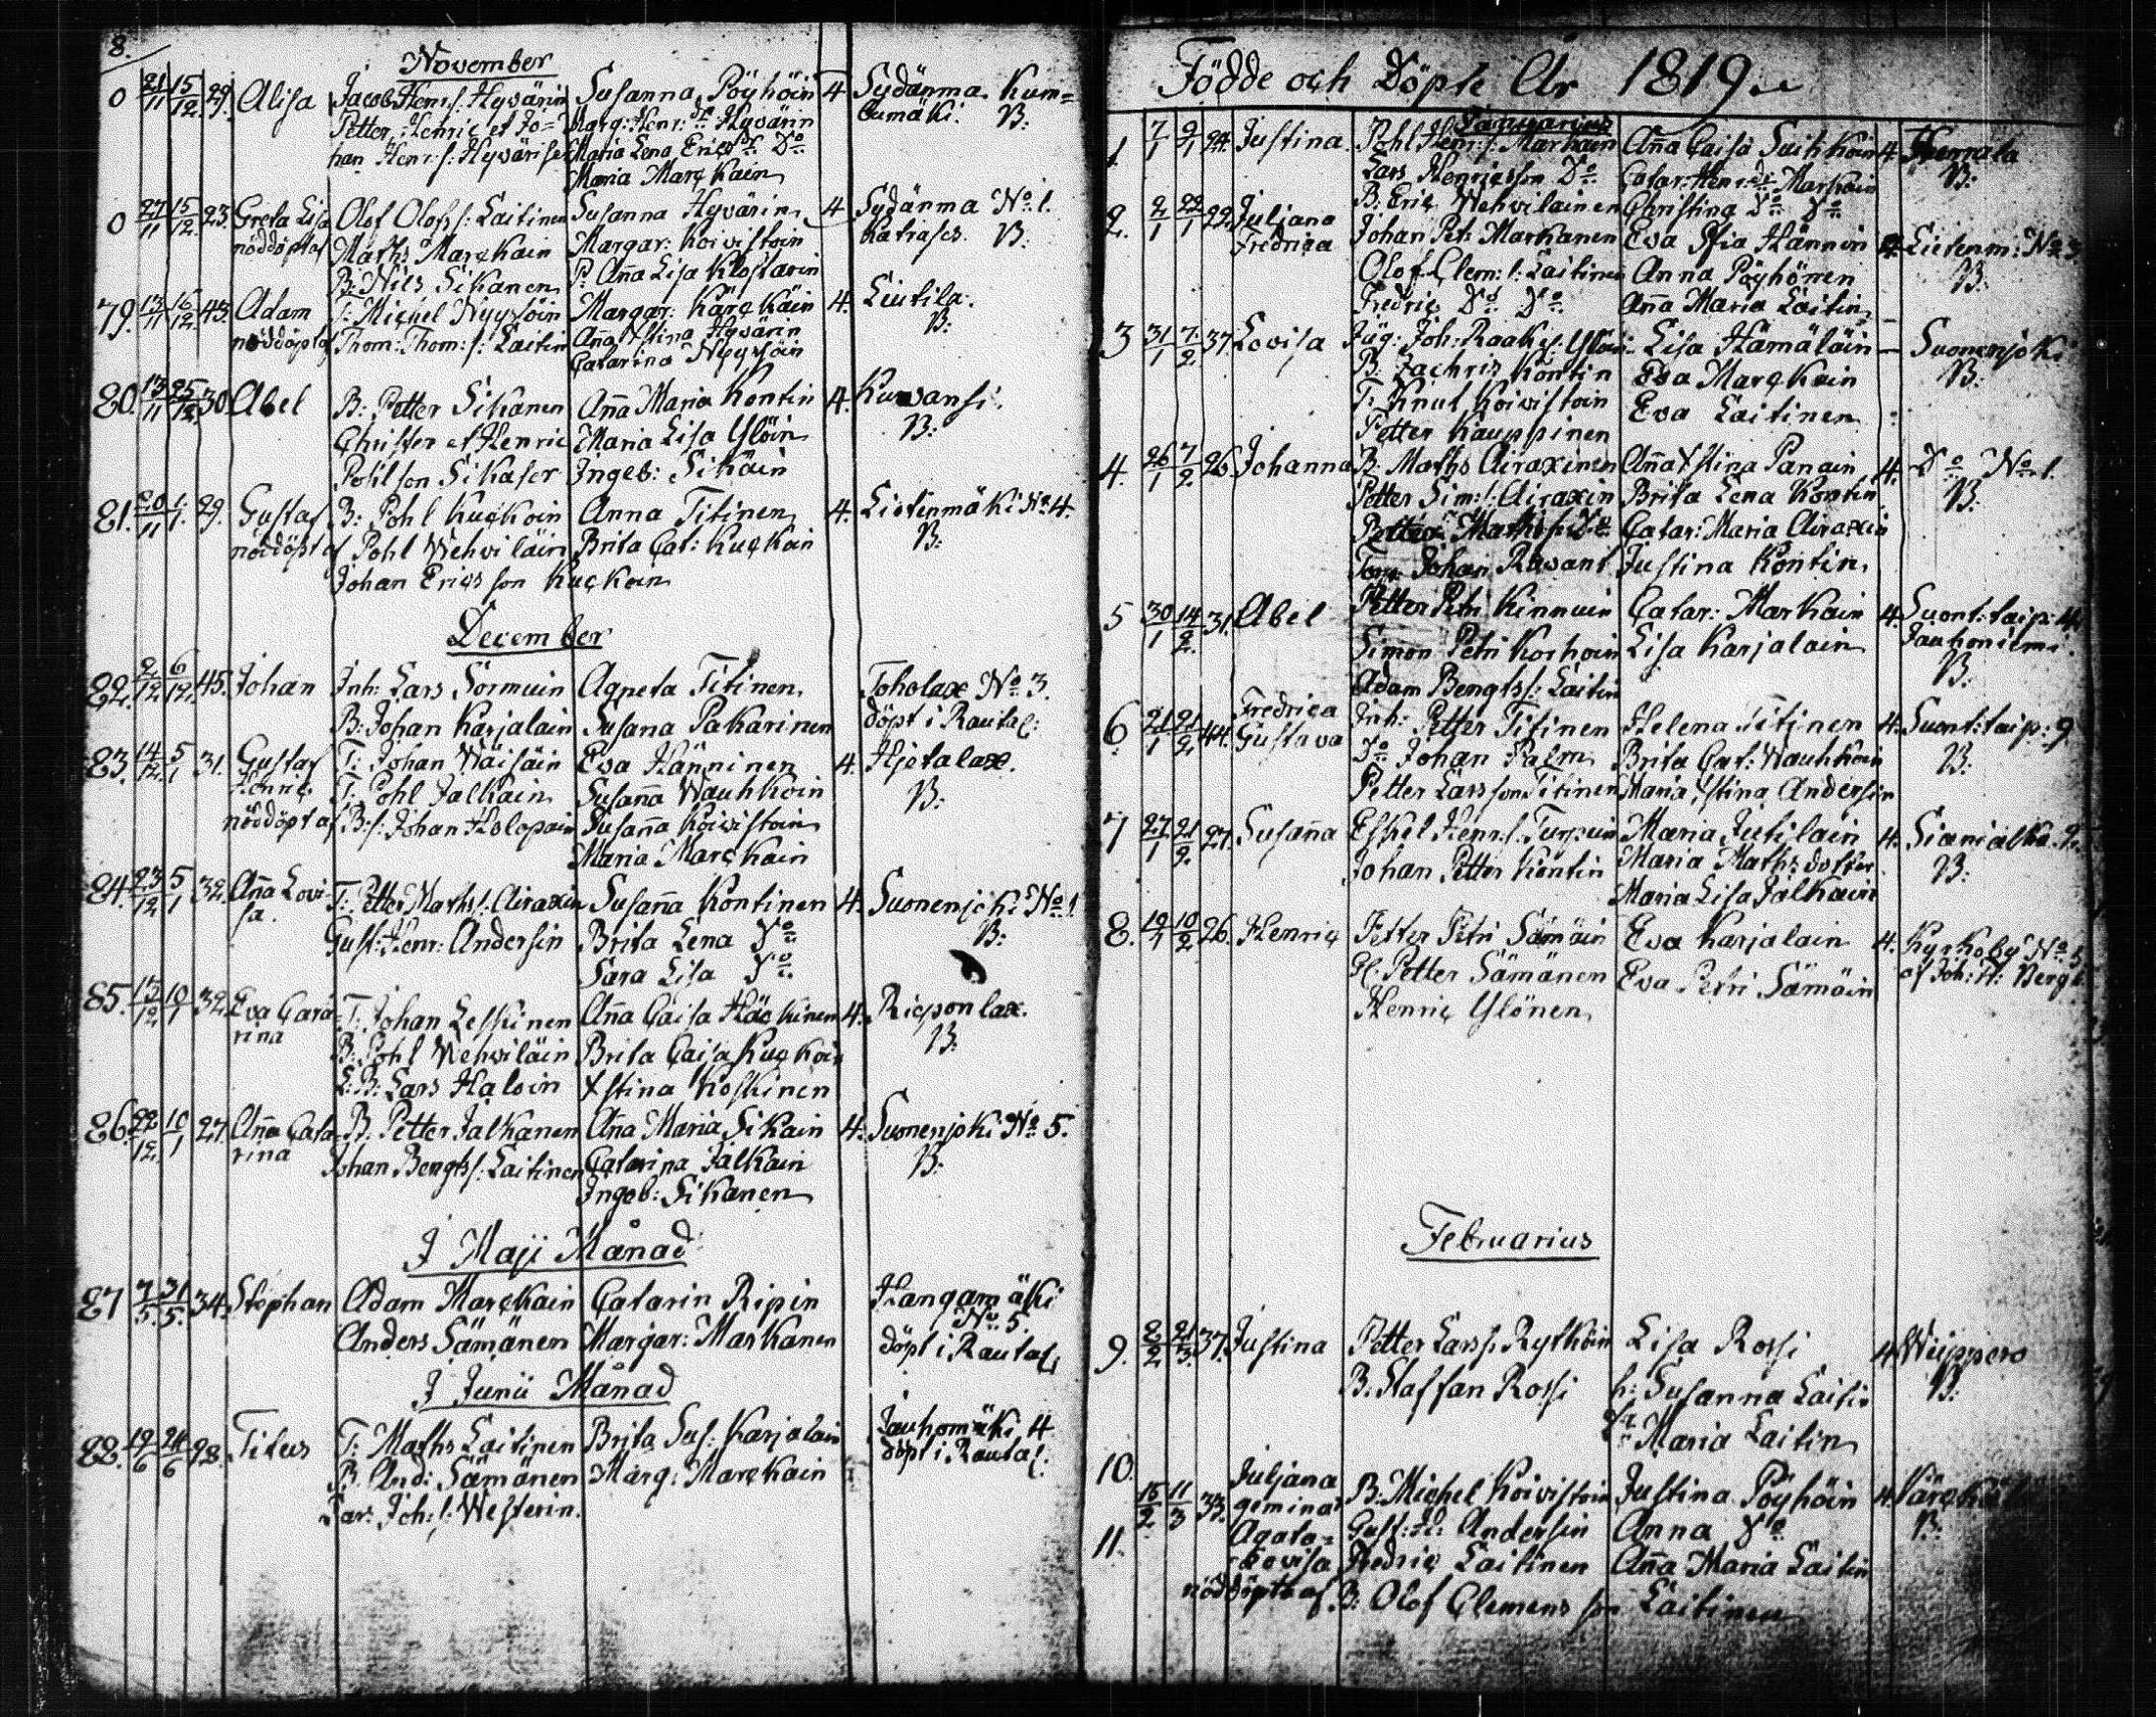 8.
November
0 21/11 15/12 29. Alisa Jacob Henr:s: Hyvärin Susanna Pöyhöin 4 Sydänma. Kum=
Petter, Henric et Jo= Marg: Henr: Dr Hyvärin B:
han Henr:s: Hyväriser Maria Lena Erics Dr Do
Maria Marckain
0 27/11 15/12 23. Greta Lisa Olof Olofs s: Laitinen Susanna Hyvärin 4 Sydänma No 1.
nöddöpt af Maths Marckain Margar: Koivistoin B:
B: Nils Sikanen P. Anna Lisa Klostarin
79. 13/11 16/12 43. Adam T: Michel Nyyssöin Margar: Kärckäin 4. Liutila.
nöddöpt af Thom: Thom: s: Laitin Anna Xstina Hyvärin B:
Catarina Nyyssöin
80. 13/11 25/12 30. Abel B: Petter Sikanen Anna Maria Kontin 4. Kuvansi.
Christer et Henric Maria Lisa Ylöin B:
Pohlson Sikaser Ingeb: Sikäin
81. 20/11 1/1 29. Gustaf B: Pohl Kuckoin Anna Titinen 4. Lietenmäki No 4.
nöddöpt af Pohl Wehviläin Brita Cat: Kuckoin B:
Johan Ericsson Kuckoin
December
82. 2/12 6/12 45. Johan Inh: Lars Sormuin Agneta Titinen Toholax No 3.
B: Johan Karjalain Susana Pakarinen döpt i Rautal:
83. 14/12 5/1 31. Gustaf T: Johan Wäisäin Eva Hänninen 4. Hjetalax.
Henric T. Pohl Jalkain Susanna Wauhkoin B:
nöddöpt af B:s: Johan Holopain Susanna Koivistoin
Maria Marckain
84. 23/12 5/1 32. Anna Lovi= T: Petter Maths s: Airaxin Susanna Kontinen 4. Suonenjoki No 1.
sa. Gust: Henr: Andersin Brita Lena Do B:
Sara Lisa Do
85. 13/12 10/1 32. Eva Cata= T: Johan Leskinen Anna Caisa Häckinen 4. Rieponlax.
rina B: Pohl Wehviläin Brita Caisa Kuckoin B:
L: B: Lars Haloin Xstina Koskinen
86. 22/12 10/1 27. Anna Cata= B: Petter Jalkanen Anna Maria Sikain 4. Suonenjoki No 5.
rina Johan Bengts s: Laitinen Catarina Jalkain B:
Ingeb: Sikanen
I Maji Månad
87 7/5 31/5 34. Stephan Adam Marckain Catarin Ripin Hangamäki
No 5.
Anders Sämänen Margar: Markanen döpt i Rautal:
I Junii Månad
88. 19/6 24/6 28. Titus T: Maths Laitinen Brita Sus: Karjalain Jauhomäki 4
B. And: Sämänen Marg: Marckain döpt i Rautal:
Lars Joh: s: Westerin.
Födde och Döpte År 1819
Januarius
1. 7/1 9/1 24. Justina. Pohl Henr: s: Markain Anna Caisa Laihkoin 4 Herrala
Lars Henricsson Do Catar: Henr: Dr Markain B:
B: Eric Wehvilainen Christina Do Do
2. 2/1 22. Juljana Johan Pet: Markanen Eva Sfia Hännin 4. Lietenm: No 3.
Fredrica Olof Clem: s: Laitinen Anna Pöyhönen B:
Fredric Do Do Anna Maria Laitin
3 31/1 7/2 37. Lovisa Jäg: Joh: Ylöin Lisa Hämäläin Suonenjoki
B: Zachris Kontin Eva Marckain B:
T. Knut Koivistoin Eva Laitinen
Petter Kauppinen
4. 26/1 7/2 26. Johanna B: Maths Airaxinen Anna Xstina Panain 4. Do No 1.
Petter Sim: s: Airaxin Brita Lena Kontin B:
Petter Maths s: Do Catar: Maria Airaxin
Johan Justina Kontin
5 30/1 14/2 31. Abel Petter Petri Kinnuin Catar: Markain 4 Suont: taip: 4.
Simon Petri Korhoin Lisa Karjalain Jauhoniemi.
Adam Bengts s: Laitin B:
6 21/1 21/2 44. Fredrica Inh: Petter Titinen Helena Titinen 4. Suont: taip: 9
Gustava Do Johan Palm Brita Cat: Wauhkoin B:
Petter Larsson Titinen Maria Stina Andersin
7 27/1 21/2 27. Susanna Eskel Henr: s: Turpuin Maria Jutilain 4.
Johan Petter Kontin Maria Maths dotter B:
Maria Lisa Jalkain
8. 19/1 10/2 26. Henric Petter Petri Sämäin Eva Karjalain 4. Kyrkoby No 5
Petter Sämänen Eva Petri Sämäin af Joh: H: Bergh
Henric Ylönen
Februarius
9. 2/2 21/3 37. Justina Petter Lars s: Rytköin Lisa Rossi 4 Wiippero
B. Staffan Rossi h: Susanna Laitin B:
Maria Laitin
10. Juljana
15/2 11/3 33. gemina B: Michel Koivistoin Justina Pöyhöin 4.
Agata= Gust: H: Andersin Anna Do B:
11. Lovisa Fredric Laitinen Anna Maria Laitin
nöddöpte af B: Olof Clemens son Laitinen